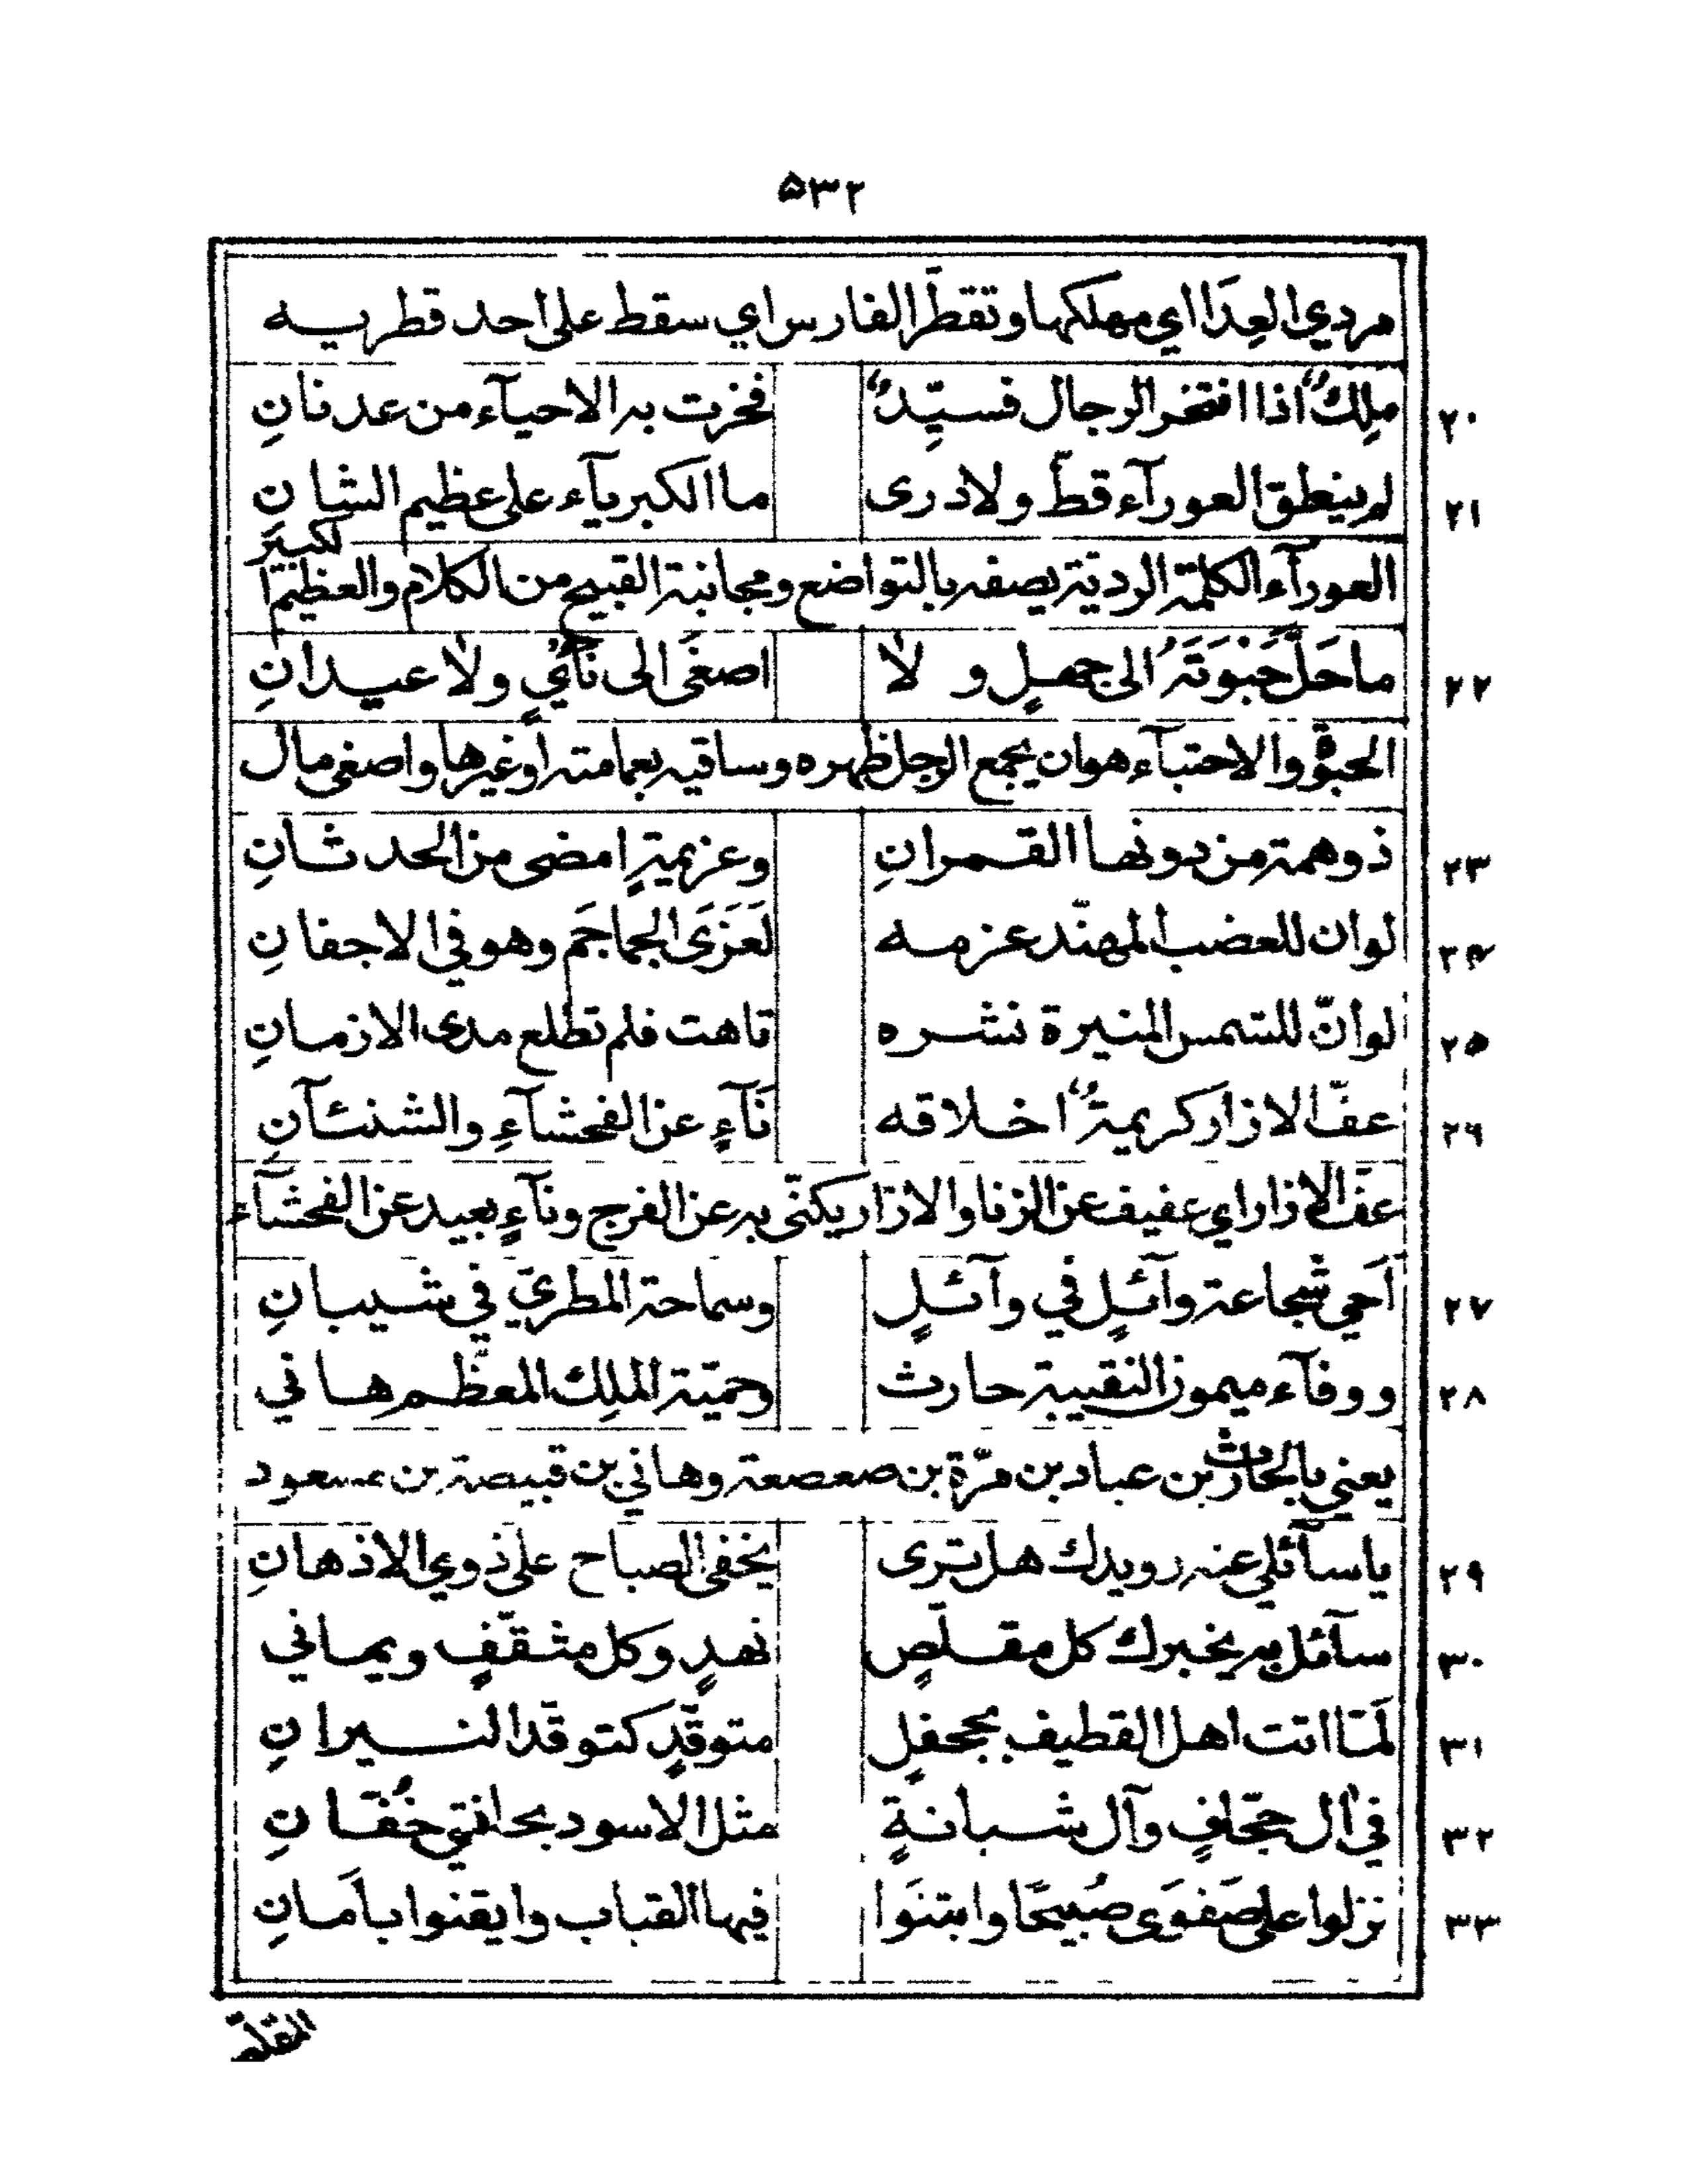 ٥٣٢
مردي العِدَا اي مهلكها وتقطّر الفارس اي سقط على احد قطريه
٢٠ ملِكٌ اذا افتخر الرجال فسيّدٌ فخرت به الاحيآء من عدنانِ
٢١ لم ينطق العورآء قطّ ولا درى ما الكبريآء على عظيم الشانِ
العورآء الكلمة الردية يصفه بالتواضع ومجانبة القبيح من الكلام والعظيم الكبير
٢٢ ما حَلَّ حَبْوَتَهُ الى جهلٍ ولا اصغَى الى نَأيٍ ولا عيدانِ
الحبوة والاحتبآء هو ان يجمع الرجل ظهره وساقيه بعمامته او غيرها واصغى مال
٢٣ ذو همة من دونها القمرانِ وعزيمةٍ امضى من الحدثانِ
٢٤ لو ان للعضب المهنّد عزمه لَعَزَى الجماجَم وهو في الاجفانِ
٢٥ لو انّ للشمس المنيرة نشره تاهت فلم تطلع مدى الازمانِ
٢٦ عفّ الازار كريمةٌ اخلاقه نَآءٍ عن الفحشآءِ والشنئآنِ
عفّ الازار اي عفيف عن الزنا والازار يكنّى به عن الفرج ونآءٍ بعيد عن الفحشآء
٢٧ اَحيي شجاعة وآئلٍ في وآئلٍ وسماحة المطريّ في شيبانِ
٢٨ ووفآء ميمون النقيبة حارث وحميّة الملِك المعظّم هاني
يعني بالحارث بن عباد بن مرّة بن صعصعة وهاني بن قبيصة بن مسعود
٢٩ يا سآئلي عنه رويدك هل ترى يخفى الصباح على ذوي الاذهانِ
٣٠ سآئل به يخبرك كل مقلّصٍ نهدٍ وكل مثقّفٍ ويماني
٣١ لَمّا اتت اهل القطيف بجحفلٍ متوقّدٍ كتوقّد النيرانِ
٣٢ في آل جحّافٍ وآل شبانةٍ مثل الاسود بحافتي خُفّانِ
٣٣ نزلوا على صَفوَى صُبيحًا وابتنَوا فيها القباب وايقنوا بامَانِ